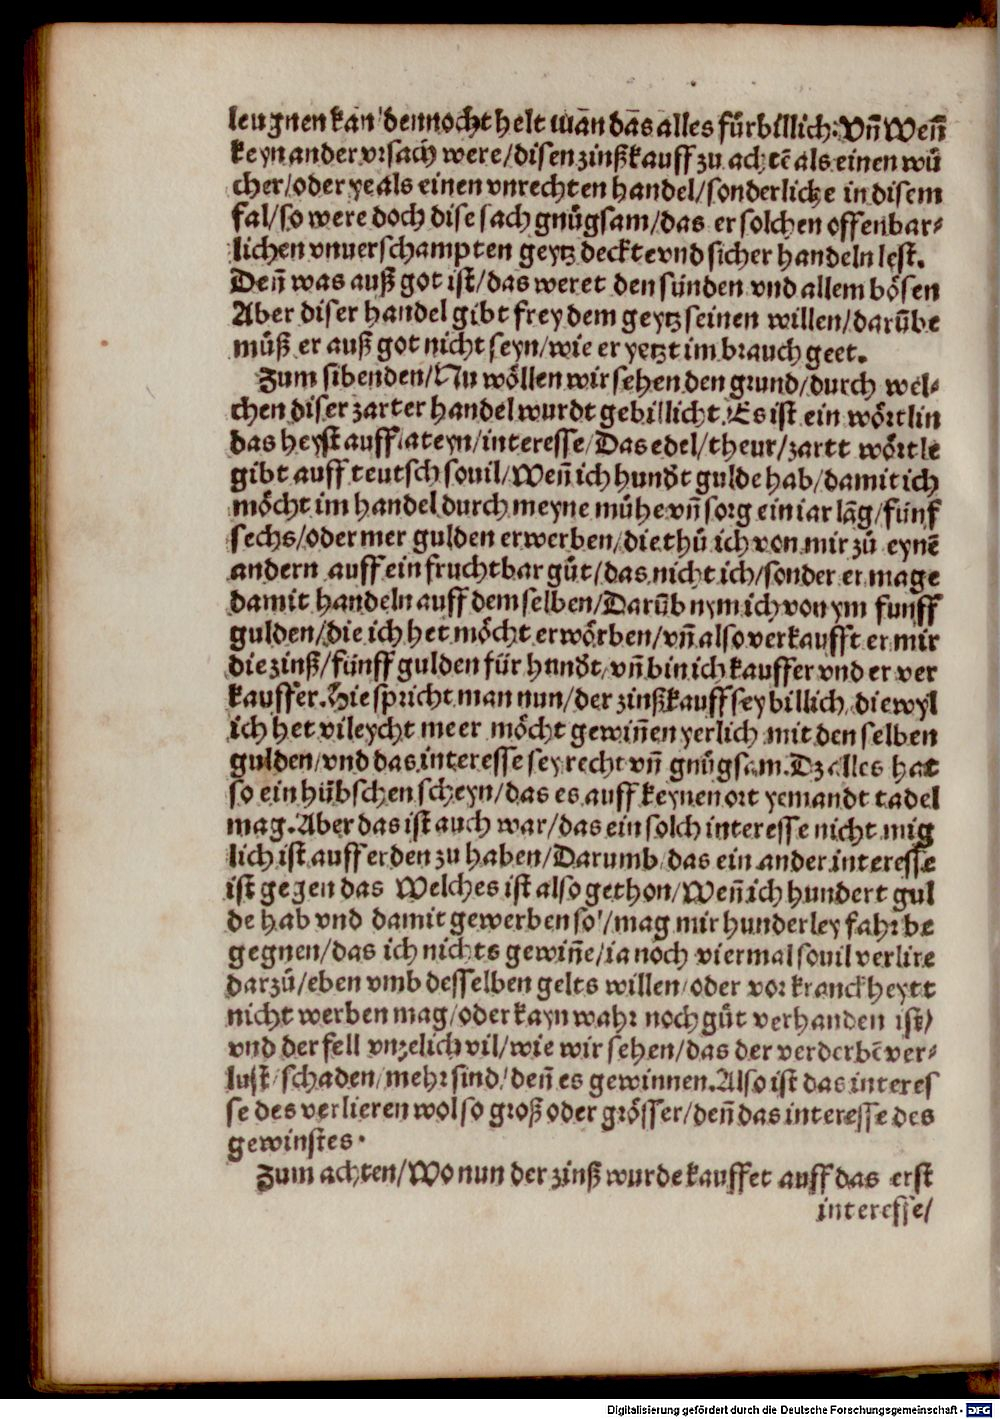 leugnen kan/dennocht helt man das alles für billich: Vñ Weñ
keyn ander vrsach were/disen zinßkauff zu achtē als einen wů
cher/oder ye als einen vnrechten handel/sonderliche in disem
fal/so were doch dise sach gnůgsam/das er solchen offenbar⸗
lichen vnuerschampten geytz deckt vnd sicher handeln lest.
Deñ was auß got ist/das weret den sünden vnd allem bösen
Aber diser handel gibt frey dem geytz seinen willen/darūbe
můß er auß got nicht seyn/wie er yetzt im brauch geet.
Zum sibenden/Nu wöllen wir sehen den grund/durch wel⸗
chen diser zarter handel wurdt gebillicht. Es ist ein wörtlin
das heyst auff lateyn/interesse/Das edel/theur/zartt wörtle
gibt auff teutsch souil/Weñ ich hundt gulde hab/damit ich
möcht im handel durch meyne mühe vñ sorg ein iar lāg/fünf
sechs/oder mer gulden erwerben/die thů ich von mir zů eynē
andern auff ein fruchtbar gůt/das nicht ich/sonder er mage
damit handeln auff dem selben/Darūb nym ich von ym funff
gulden/die ich het möcht erwörben/vñ also verkaufft er mir
die zinß/fünff gulden für hundt/vñ bin ich kauffer vnd er ver
kauffer. Hie spricht man nun/der zinßkauff sey billich/die wyl
ich het vileycht meer möcht gewiñen yerlich mit den selben
gulden/vnd das interesse sey recht vñ gnůgsam. Dz alles hat
so ein hübschen scheyn/das es auff keynen ort yemandt tadel
mag. Aber das ist auch war/das ein solch interesse nicht müg
lich ist auff erden zu haben/Darumb/das ein ander interesse
ist gegen das Welches ist also gethon/Weñ ich hundert gul
de hab vnd damit gewerben sol/mag mir hunderley fahr be
gegnen/das ich nichts gewiñe/ia noch viermal souil verlire
darzů/eben vmb desselben gelts willen/oder vor kranckheytt
nicht werben mag/oder kayn wahr noch gůt verhanden ist/
vnd der fell vnzelich vil/wie wir sehen/das der verderbē ver⸗
lust/schaden/mehr sind/deñ es gewinnen. Also ist das interes
se des verlieren wol so groß oder grösser/deñ das interesse des
gewinstes.
Zum achten/Wo nun der zinß wurde kauffet auff das erst
interesse/
Digitalisierung gefördert durch die Deutsche Forschungsgemeinschaft - DFG